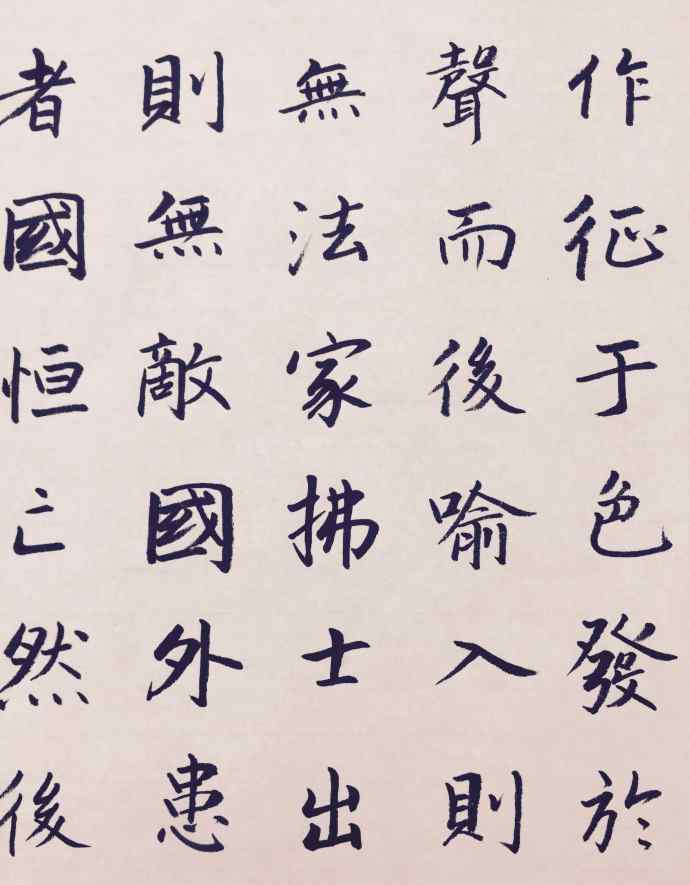 作征于色發於
聲而後喻入則
無法家拂士出
則無敵國外患
者國恒亡然後